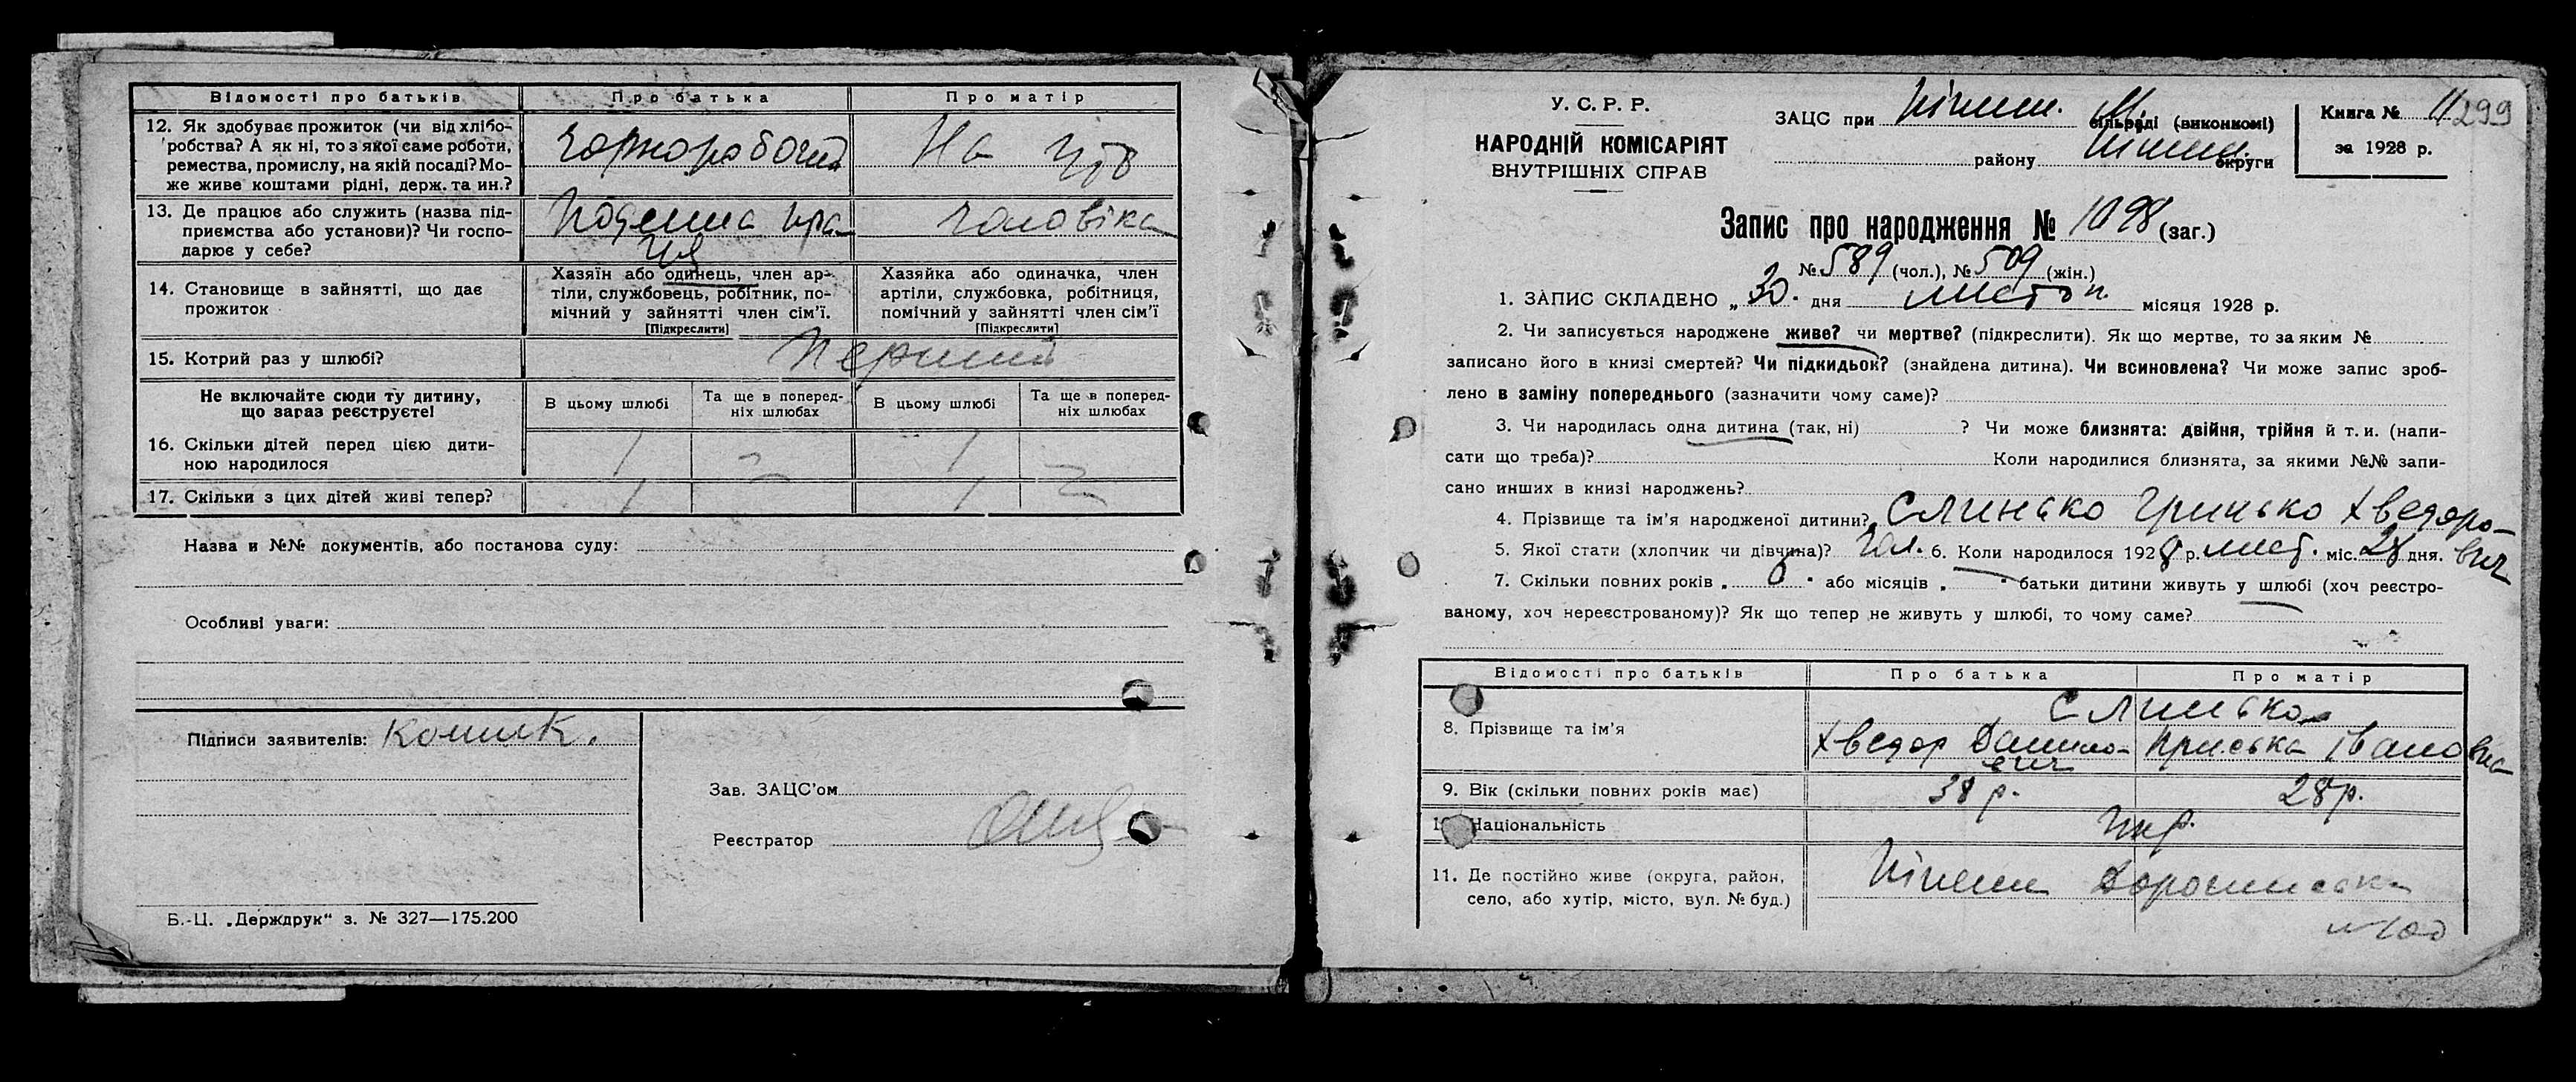 Відомості про батьків Про батька Про матір
12. Як здобуває прожиток (чи від хлібо-
робства? А як ні, то з якої саме роботи,
ремества, промислу, на якій посаді? Мо-
же живе коштами рідні, держ. та ин.?
чорноробочий На утр
13. Де працює або служить (назва під-
приємства або установи)? Чи госпо-
дарює у себе?
Поденна пра-
ця
чоловіка
14. Становище в зайнятті, що дає
прожиток
Хазяїн або одинець, член ар-
тіли, службовець, робітник, по-
мічний у зайнятті член сім'ї.
[Підкреслити]
Хазяйка або одиначка, член
артіли, службовка, робітниця,
помічний у зайнятті член сім'ї
[Підкреслити]
15. Котрий раз у шлюбі? Перший
Не включайте сюди ту дитину,
що зараз реєструєте!
В цьому шлюбі
Та ще в поперед-
ніх шлюбах
В цьому шлюбі
Та ще в поперед-
ніх шлюбах
16. Скільки дітей перед цією дити-
ною народилося
1 1
17. Скільки з цих дітей живі тепер? 1 1
Назва и №№ документів, або постанова суду:
Особливі уваги:
Підписи заявителів:
Зав. ЗАЦС'ом
Реєстратор
Б.-Ц. „Держдрук" з. № 327—175.200
У. С. Р. Р.
НАРОДНІЙ КОМІСАРІЯТ
ВНУТРІШНІХ СПРАВ
ЗАЦС при Ніжин. М. сільраді (виконкомі)
району Ніжин. округи
Книга № 11 299
за 1928 р.
Запис про народження № 1098 (заг.)
№ 589 (чол.), № 509 (жін.)
1. ЗАПИС СКЛАДЕНО „ 30. дня листоп. місяця 1928 р.
2. Чи записується народжене живе? чи мертве? (підкреслити). Як що мертве, то за яким №
записано його в книзі смертей? Чи підкидьок? (знайдена дитина). Чи всиновлена? Чи може запис зроб-
лено в заміну попереднього (зазначити чому саме)?
3. Чи народилась одна дитина (так, ні) ? Чи може близнята: двійня, трійня й т. и. (напи-
сати що треба)? Коли народилися близнята, за якими №№ запи-
сано инших в книзі народжень?
4. Прізвище та ім'я народженої дитини? Слинько Грицько Хведоро-
вич
5. Якої стати (хлопчик чи дівчина)? чол. 6. Коли народилося 1928 р. лист. міс. 28 дня.
7. Скільки повних років „ 6 " або місяців „ " батьки дитини живуть у шлюбі (хоч реєстро-
ваному, хоч нереєстрованому)? Як що тепер не живуть у шлюбі, то чому саме?
Відомості про батьків Про батька Про матір
8. Прізвище та ім'я
Слинько
Хведор Данило-
вич
Приська Івановна
9. Вік (скільки повних років має) 38 р. 28 р.
10. Національність Укр.
11. Де постійно живе (округа, район,
село, або хутір, місто, вул. № буд.)
Ніжин